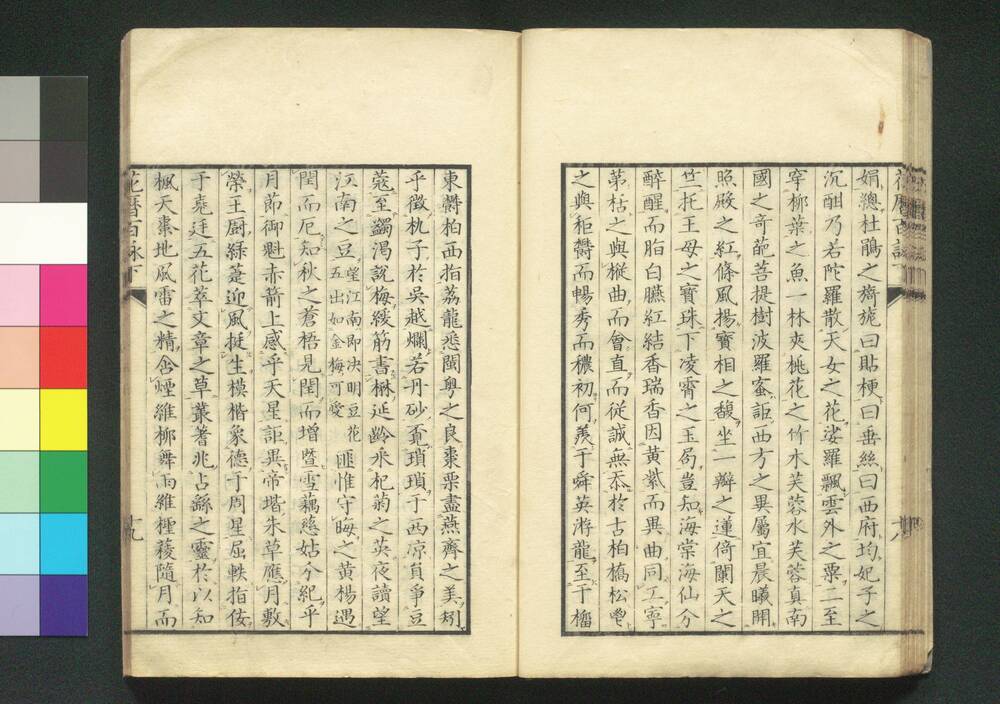 娟總杜鵑之旖旎曰貼梗曰垂絲曰西府均妃子之
沉酣乃若陀羅散天女之花娑羅飄雲外之粟二至
穿柳葉之魚一林夾桃花之竹木芙蓉水芙蓉真南
國之奇葩菩提樹波羅蜜詎西方之異屬宜晨曦開
照殿之紅條風揚寶相之馥坐一瓣之蓮倚闌天之
竺托王母之寶珠下凌霄之玉局豈知海棠海仙分
醉醒而脂白臙紅結香瑞香因黄紫而異曲同工寧
第枯之與樅曲而會直而從誠無忝於古柏橋松
之與秬鬱而暢秀而穠初何羨于舜英游龍至于櫾
東欝柏西指荔龍悉閩粤之良棗栗盡燕齊之美矧
乎徵杬子於吳越爛若丹砂賁瑣瑣于西凉負爭豆
蔻至蠲渴說梅緩筋書楙延齡釆杞菊之英夜讀望
江南之豆望江南即决明豆花五出如金梅可愛匪惟守晦之黄楊遇
閏而厄知秋之蒼梧見閏而增暨雪藕慈姑今紀乎
月莭御魁赤箭上感乎天星詎異帝堦朱草應月敷
榮王厨緑萐迎風挺生模楷象德于周星屈軼指佞
于堯廷五花萃文章之草叢蓍兆占繇之靈於以知
楓天棗地風雷之精含煙維柳舞雨維檉薐隨月而
花曆百詠下
十九